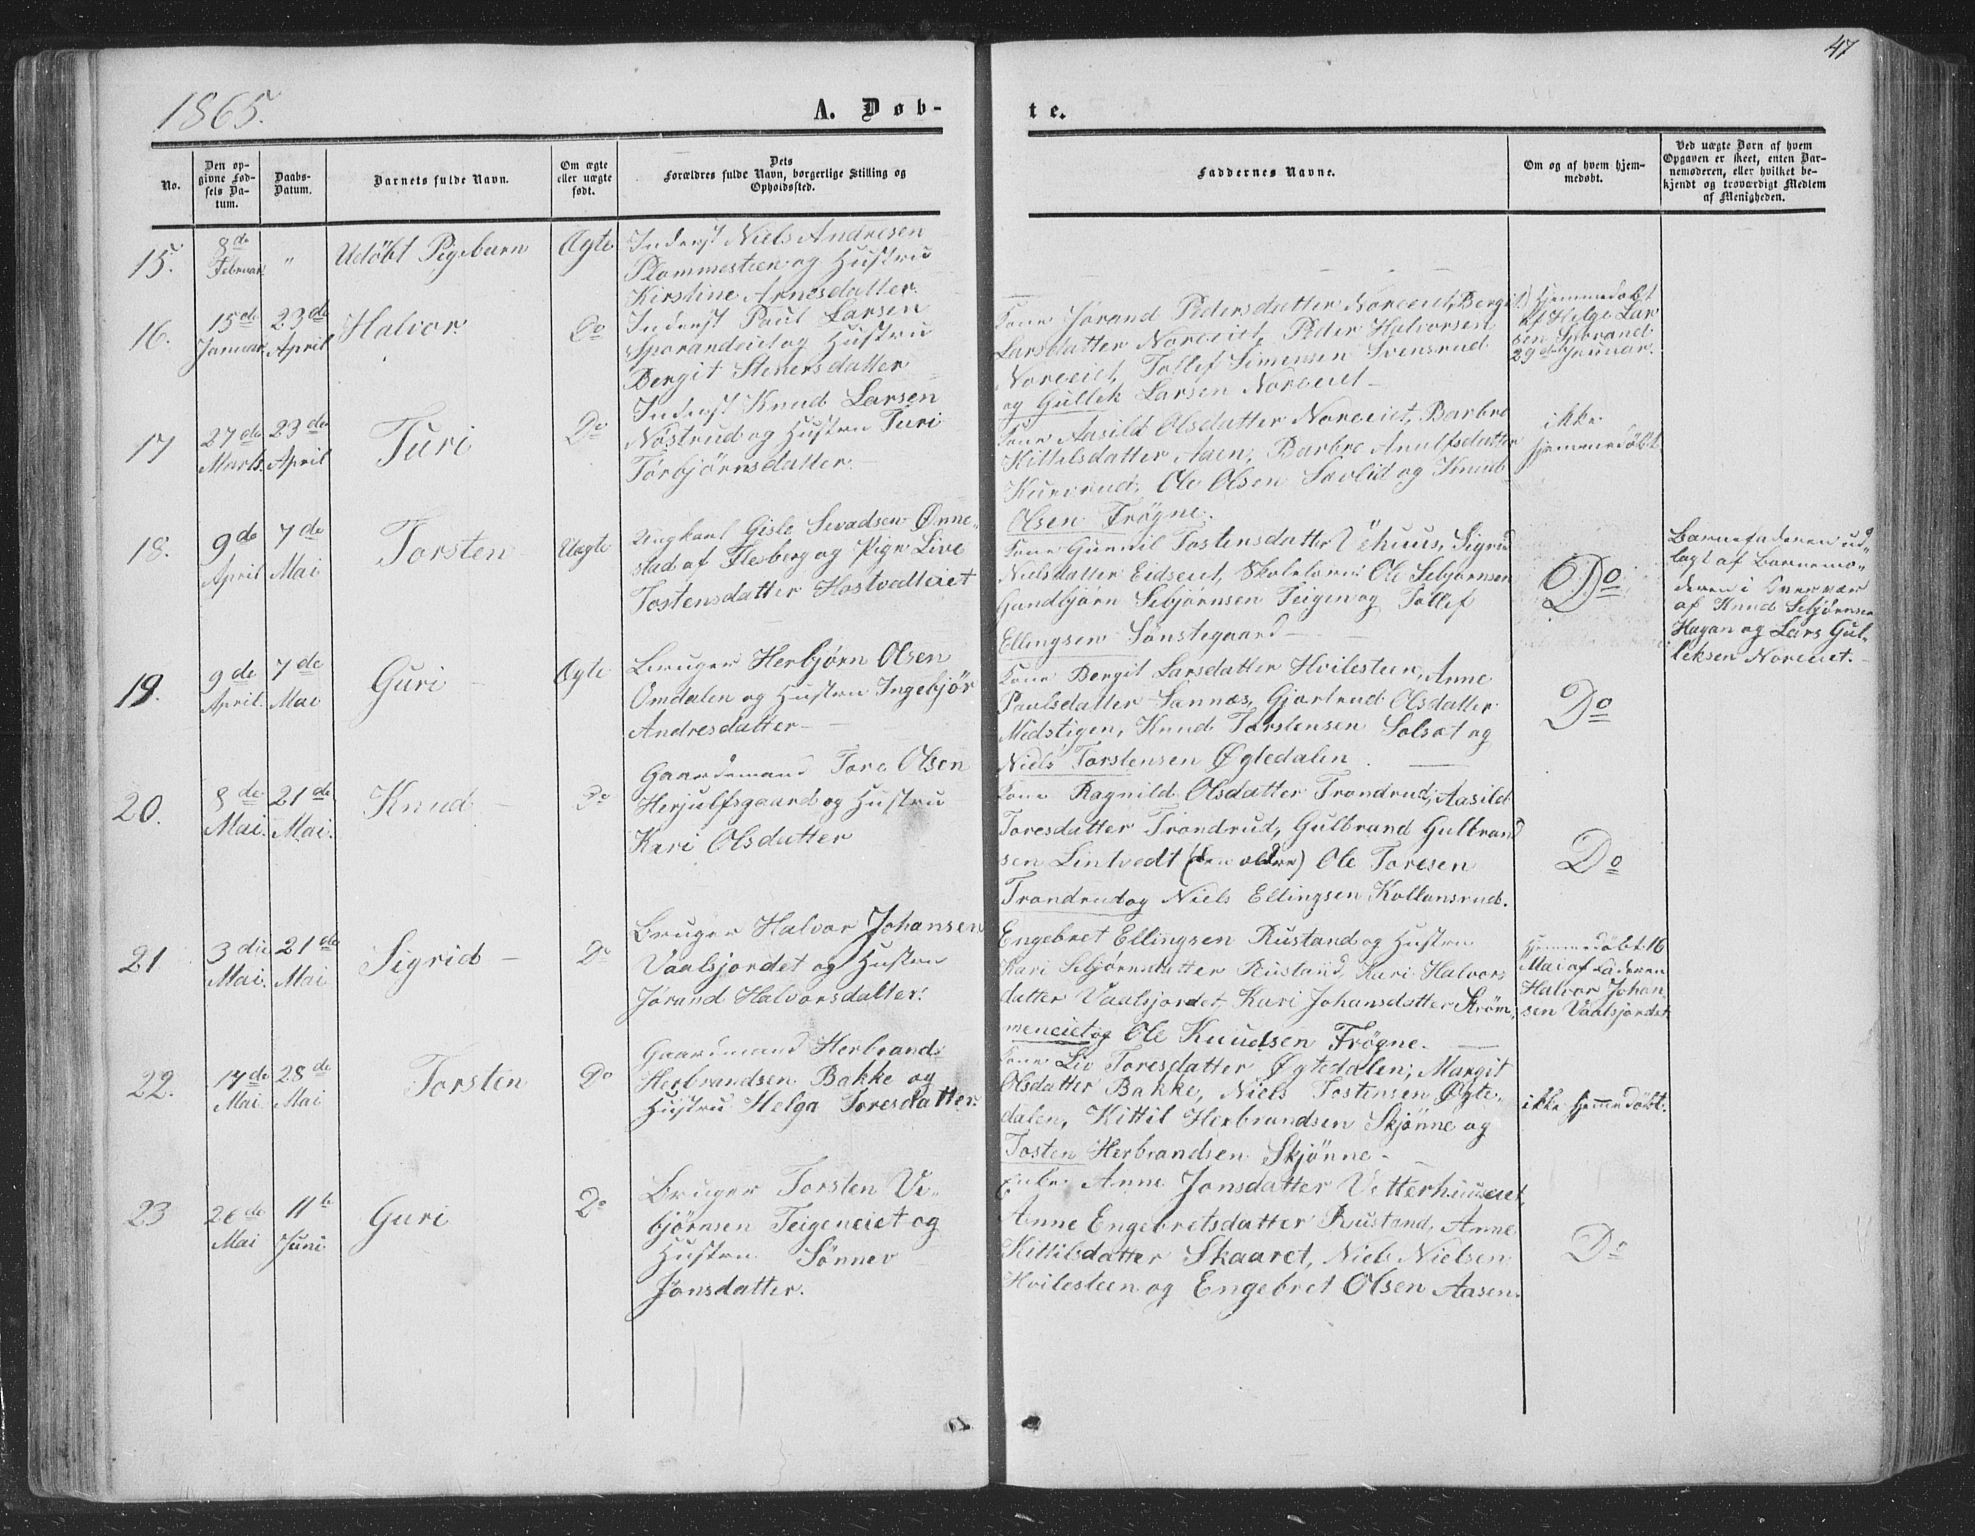 47
1865.
A. Døb-
te.
No.
Den op-
givne Fød-
sels Da-
tum.
Daabs-
Datum.
Barnets fulde Navn.
Om ægte
eller uægte
født.
Dets
Forældres fulde Navn, borgerlige Stilling og
Opholdssted.
Faddernes Navne.
Om og af hvem hjem-
medøbt.
Ved uægte Børn af hvem
Opgaven er skeet, enten Bar-
nemoderen, eller hvilket be-
kjendt og troværdigt Medlem
af Menigheden.
15.
8de
Februar
"
Udöbt Pigebarn
Ægte
Inderst Niels Andresen
Plommesteen og Hustru
Kirstine Arnesdatter.
16.
15de
Januar
23de
April
Halvor
Do
Inderst Paul Larsen
Sporaneiet og Hustru
Bergit Stenersdatter
Kone Jörand Pedersdatter Noreeiet, Bergit
Larsdatter Noreeiet, Peder Halvorsen
Noreeiet, Tollef Simensen Svensrud
og Gullek Larsen Noreeiet
Hjemmedöbt
af Helge Lar
sen Sporand
29de Januar.
17
27de
Marts
23de
April
Turi
Do
Inderst Knud Larsen
Nöstrud og Hustru Turi
Torbjørnsdatter
Kone Aasild Olsdatter Noreeiet, Barbro
Kittelsdatter Aaen, Barbro Anulfsdatter
Kurvrud, Ole Olsen Savlid og Knud
Olsen Frögne.
ikke
hjemmedöbt
18.
9de
April
7de
Mai
Torsten
Uægte
Ungkarl Gisle Sevadsen Ønne-
stad af Flesberg og Pige Live
Tostensdatter Hostvedteiet
Kone Gunnil Tostensdatter Véhuus, Sigrid
Nielsdatter Eidseiet, Skolelærer Ole Sebjörnsen
Gundbjörn Sebjörnsen Teigen og Tollef
Ellingsen Sönstegaard
Do
Barnefaderen ud-
lagt af Barnemo-
deren i Overvær
af Knud Sebjörnsen
Hagan og Lars Gul-
leksen Noreeiet.
19.
9de
April.
7de
Mai
Guri
Ægte
Bruger Herbjørn Olsen
Omdalen og Hustru Ingebjör
Andresdatter
Kone Bergit Larsdatter Hvilesteen, Anne
Paulsdatter Sannæs, Gjertrud Olsdatter
Midstigen, Knud Torstensen Solsat og
Niels Torstensen Øgtedalen.
Do
20.
8de
Mai.
21de
Mai.
Knud
Do
Gaardemand Tore Olsen
Herjulfsgaard og Hustru
Kari Olsdatter
Kone Ragnild Olsdatter Trondrud, Aasild
Toresdatter Trondrud, Gulbrand Gulbrand
sen Lintvedt (den ældre) Ole Toresen
Trondrud og Niels Ellingsen Kollansrud.
Do
21
3die
Mai.
21de
Mai
Sigrid
Do
Bruger Halvor Johansen
Vaalsjordet og Hustru
Jörand Halvorsdatter.
Engebret Ellingsen Rustand og Hustru
Kari Sebjörnsdatter Rustand, Kari Halvors
datter Vaalsjordet, Kari Johansdatter Ström,
meneiet og Ole Knudsen Frögne.
Hjemmedöbt 16
Mai af Faderen
Halvor Johan
sen Vaalsjordet
22.
17de
Mai
28de
Mai
Torsten
Do
Gaardemand Herbrand
Herbrandsen Bakke og
Hustru Helga Toresdatter.
Kone Liv Toresdatter Øgtedalen, Margit
Olsdatter Bakke, Niels Tostensen Øgte-
dalen, Kittil Herbrandsen Skjönne og
Tosten Herbrandsen Skjönne
ikke hjemmedöbt.
23
26de
Mai
11te
Juni
Guri
Do
Bruger Torsten Ve-
bjørnsen Teigeneiet og
Hustru Sönnev
Jonsdatter.
Enke Anne Jonsdatter Vetterhuuseiet,
Anne Engebretsdatter Rustand, Anne
Kittilsdatter Skaaret, Niels Nielsen
Hvilesteen og Engebret Olsen Aasen.
Do